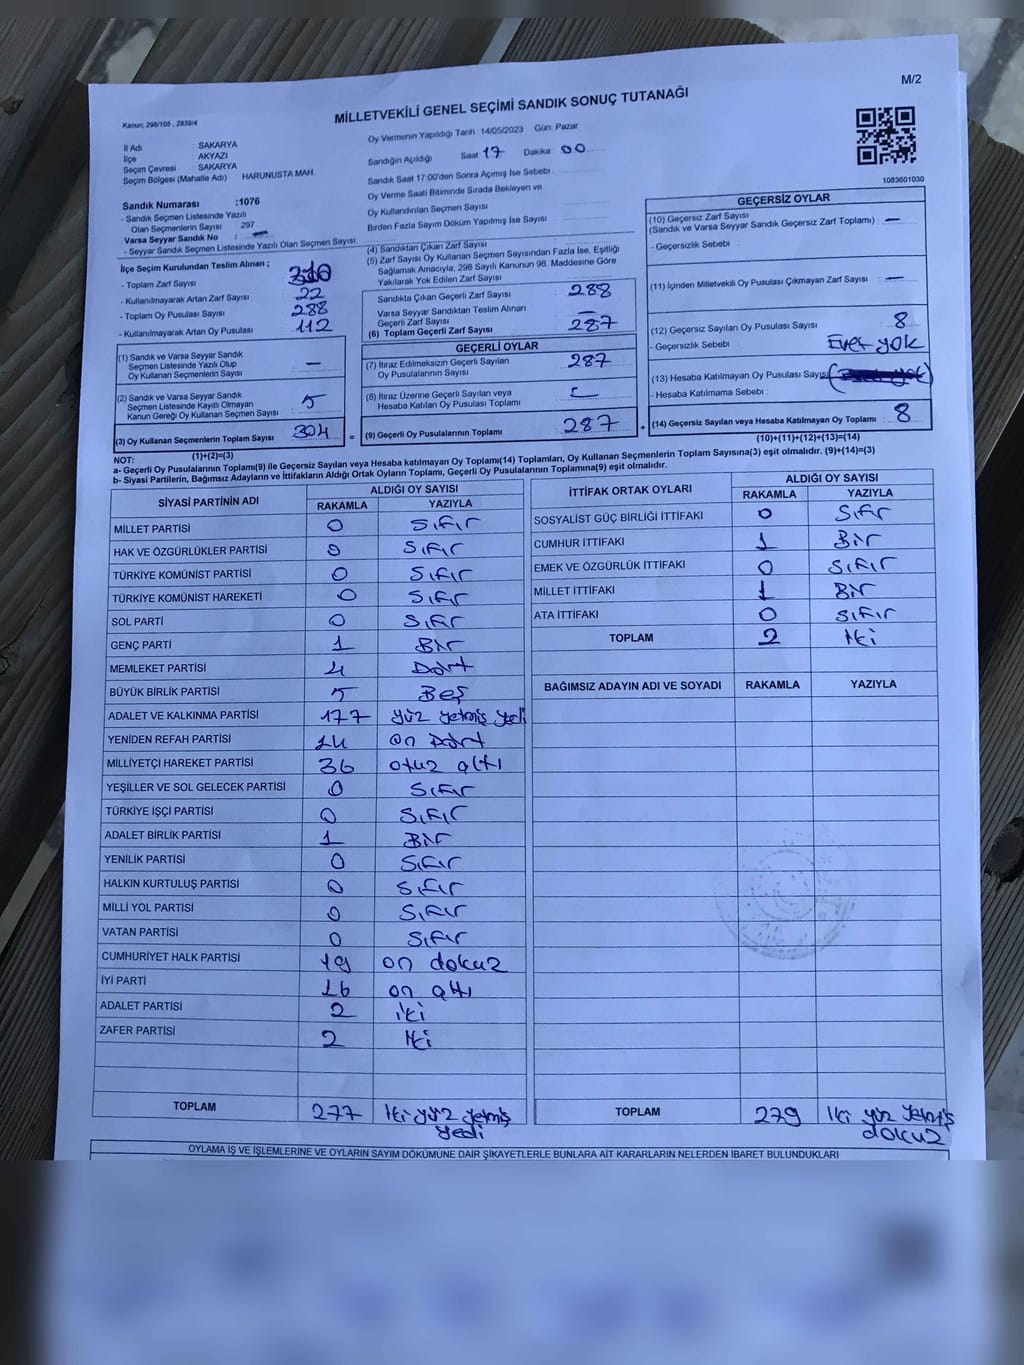 M/2
MİLLETVEKİLİ GENEL SEÇİMİ SANDIK SONUÇ TUTANAĞI
Kanun; 298/105 , 2839/4
İl Adı : SAKARYA
İlçe : AKYAZI
Seçim Çevresi : SAKARYA
Seçim Bölgesi (Mahalle Adı) HARUNUSTA MAH.
Sandık Numarası :1076
- Sandık Seçmen Listesinde Yazılı
Olan Seçmenlerin Sayısı 297
Varsa Seyyar Sandık No : —
- Seyyar Sandık Seçmen Listesinde Yazılı Olan Seçmen Sayısı
Oy Vermenin Yapıldığı Tarih 14/05/2023 Gün Pazar
Sandığın Açıldığı Saat 17 Dakika : 00
Sandık Saat 17:00'den Sonra Açımış İse Sebebi :
Oy Verme Saati Bitiminde Sırada Bekleyen ve
Oy Kullandırılan Seçmen Sayısı
Birden Fazla Sayım Döküm Yapılmış İse Sayısı
1083601030
İlçe Seçim Kurulundan Teslim Alınan ;
- Toplam Zarf Sayısı :
- Kullanılmayarak Artan Zarf Sayısı : 22
- Toplam Oy Pusulası Sayısı : 288
- Kullanılmayarak Artan Oy Pusulası : 112
(1) Sandık ve Varsa Seyyar Sandık
Seçmen Listesinde Yazılı Olup
Oy Kullanan Seçmenlerin Sayısı : —
(2) Sandık ve Varsa Seyyar Sandık
Seçmen Listesinde Kayıtlı Olmayan
Kanun Gereği Oy Kullanan Seçmen Sayısı : 5
(3) Oy Kullanan Seçmenlerin Toplam Sayısı 304
(1)+(2)=(3)
(4) Sandıktan Çıkan Zarf Sayısı
(5) Zarf Sayısı Oy Kullanan Seçmen Sayısından Fazla İse, Eşitliği
Sağlamak Amacıyla; 298 Sayılı Kanunun 98. Maddesine Göre
Yakılarak Yok Edilen Zarf Sayısı
Sandıkta Çıkan Geçerli Zarf Sayısı 288
Varsa Seyyar Sandıktan Teslim Alınan
Geçerli Zarf Sayısı —
(6) Toplam Geçerli Zarf Sayısı 287
GEÇERLİ OYLAR
(7) İtiraz Edilmeksizin Geçerli Sayılan
Oy Pusulalarının Sayısı 287
(8) İtiraz Üzerine Geçerli Sayılan veya
Hesaba Katılan Oy Pusulası Toplamı
= (9) Geçerli Oy Pusulalarının Toplamı 287 +
GEÇERSİZ OYLAR
(10) Geçersiz Zarf Sayısı
(Sandık ve Varsa Seyyar Sandık Geçersiz Zarf Toplamı) : —
- Geçersizlik Sebebi :
(11) İçinden Milletvekili Oy Pusulası Çıkmayan Zarf Sayısı : —
(12) Geçersiz Sayılan Oy Pusulası Sayısı : 8
- Geçersizlik Sebebi : Evet yok
(13) Hesaba Katılmayan Oy Pusulası Sayısı
- Hesaba Katılmama Sebebi :
(14) Geçersiz Sayılan veya Hesaba Katılmayan Oy Toplamı : 8
(10)+(11)+(12)+(13)=(14)
NOT:
a- Geçerli Oy Pusulalarının Toplamı(9) ile Geçersiz Sayılan veya Hesaba katılmayan Oy Toplamı(14) Toplamları, Oy Kullanan Seçmenlerin Toplam Sayısına(3) eşit olmalıdır. (9)+(14)=(3)
b- Siyasi Partilerin, Bağımsız Adayların ve İttifakların Aldığı Ortak Oyların Toplamı, Geçerli Oy Pusulalarının Toplamına(9) eşit olmalıdır.
SİYASİ PARTİNİN ADI ALDIĞI OY SAYISI
RAKAMLA YAZIYLA
MİLLET PARTİSİ 0 Sıfır
HAK VE ÖZGÜRLÜKLER PARTİSİ 0 Sıfır
TÜRKİYE KOMÜNİST PARTİSİ 0 Sıfır
TÜRKİYE KOMÜNİST HAREKETİ 0 Sıfır
SOL PARTİ 0 Sıfır
GENÇ PARTİ 1 Bir
MEMLEKET PARTİSİ 4 Dört
BÜYÜK BİRLİK PARTİSİ 5 Beş
ADALET VE KALKINMA PARTİSİ 177 yüz yetmiş yedi
YENİDEN REFAH PARTİSİ 14 on Dört
MİLLİYETÇİ HAREKET PARTİSİ 36 otuz altı
YEŞİLLER VE SOL GELECEK PARTİSİ 0 Sıfır
TÜRKİYE İŞÇİ PARTİSİ 0 Sıfır
ADALET BİRLİK PARTİSİ 1 Bir
YENİLİK PARTİSİ 0 Sıfır
HALKIN KURTULUŞ PARTİSİ 0 Sıfır
MİLLİ YOL PARTİSİ 0 Sıfır
VATAN PARTİSİ 0 Sıfır
CUMHURİYET HALK PARTİSİ 19 on dokuz
İYİ PARTİ 16 on altı
ADALET PARTİSİ 2 iki
ZAFER PARTİSİ 2 iki
TOPLAM 277 iki yüz yetmiş
yedi
İTTİFAK ORTAK OYLARI ALDIĞI OY SAYISI
RAKAMLA YAZIYLA
SOSYALİST GÜÇ BİRLİĞİ İTTİFAKI 0 Sıfır
CUMHUR İTTİFAKI 1 Bir
EMEK VE ÖZGÜRLÜK İTTİFAKI 0 Sıfır
MİLLET İTTİFAKI 1 Bir
ATA İTTİFAKI 0 Sıfır
TOPLAM 2 iki
BAĞIMSIZ ADAYIN ADI VE SOYADI RAKAMLA YAZIYLA
TOPLAM 279 iki yüz yetmiş
dokuz
OYLAMA İŞ VE İŞLEMLERİNE VE OYLARIN SAYIM DÖKÜMÜNE DAİR ŞİKAYETLERLE BUNLARA AİT KARARLARIN NELERDEN İBARET BULUNDUKLARI